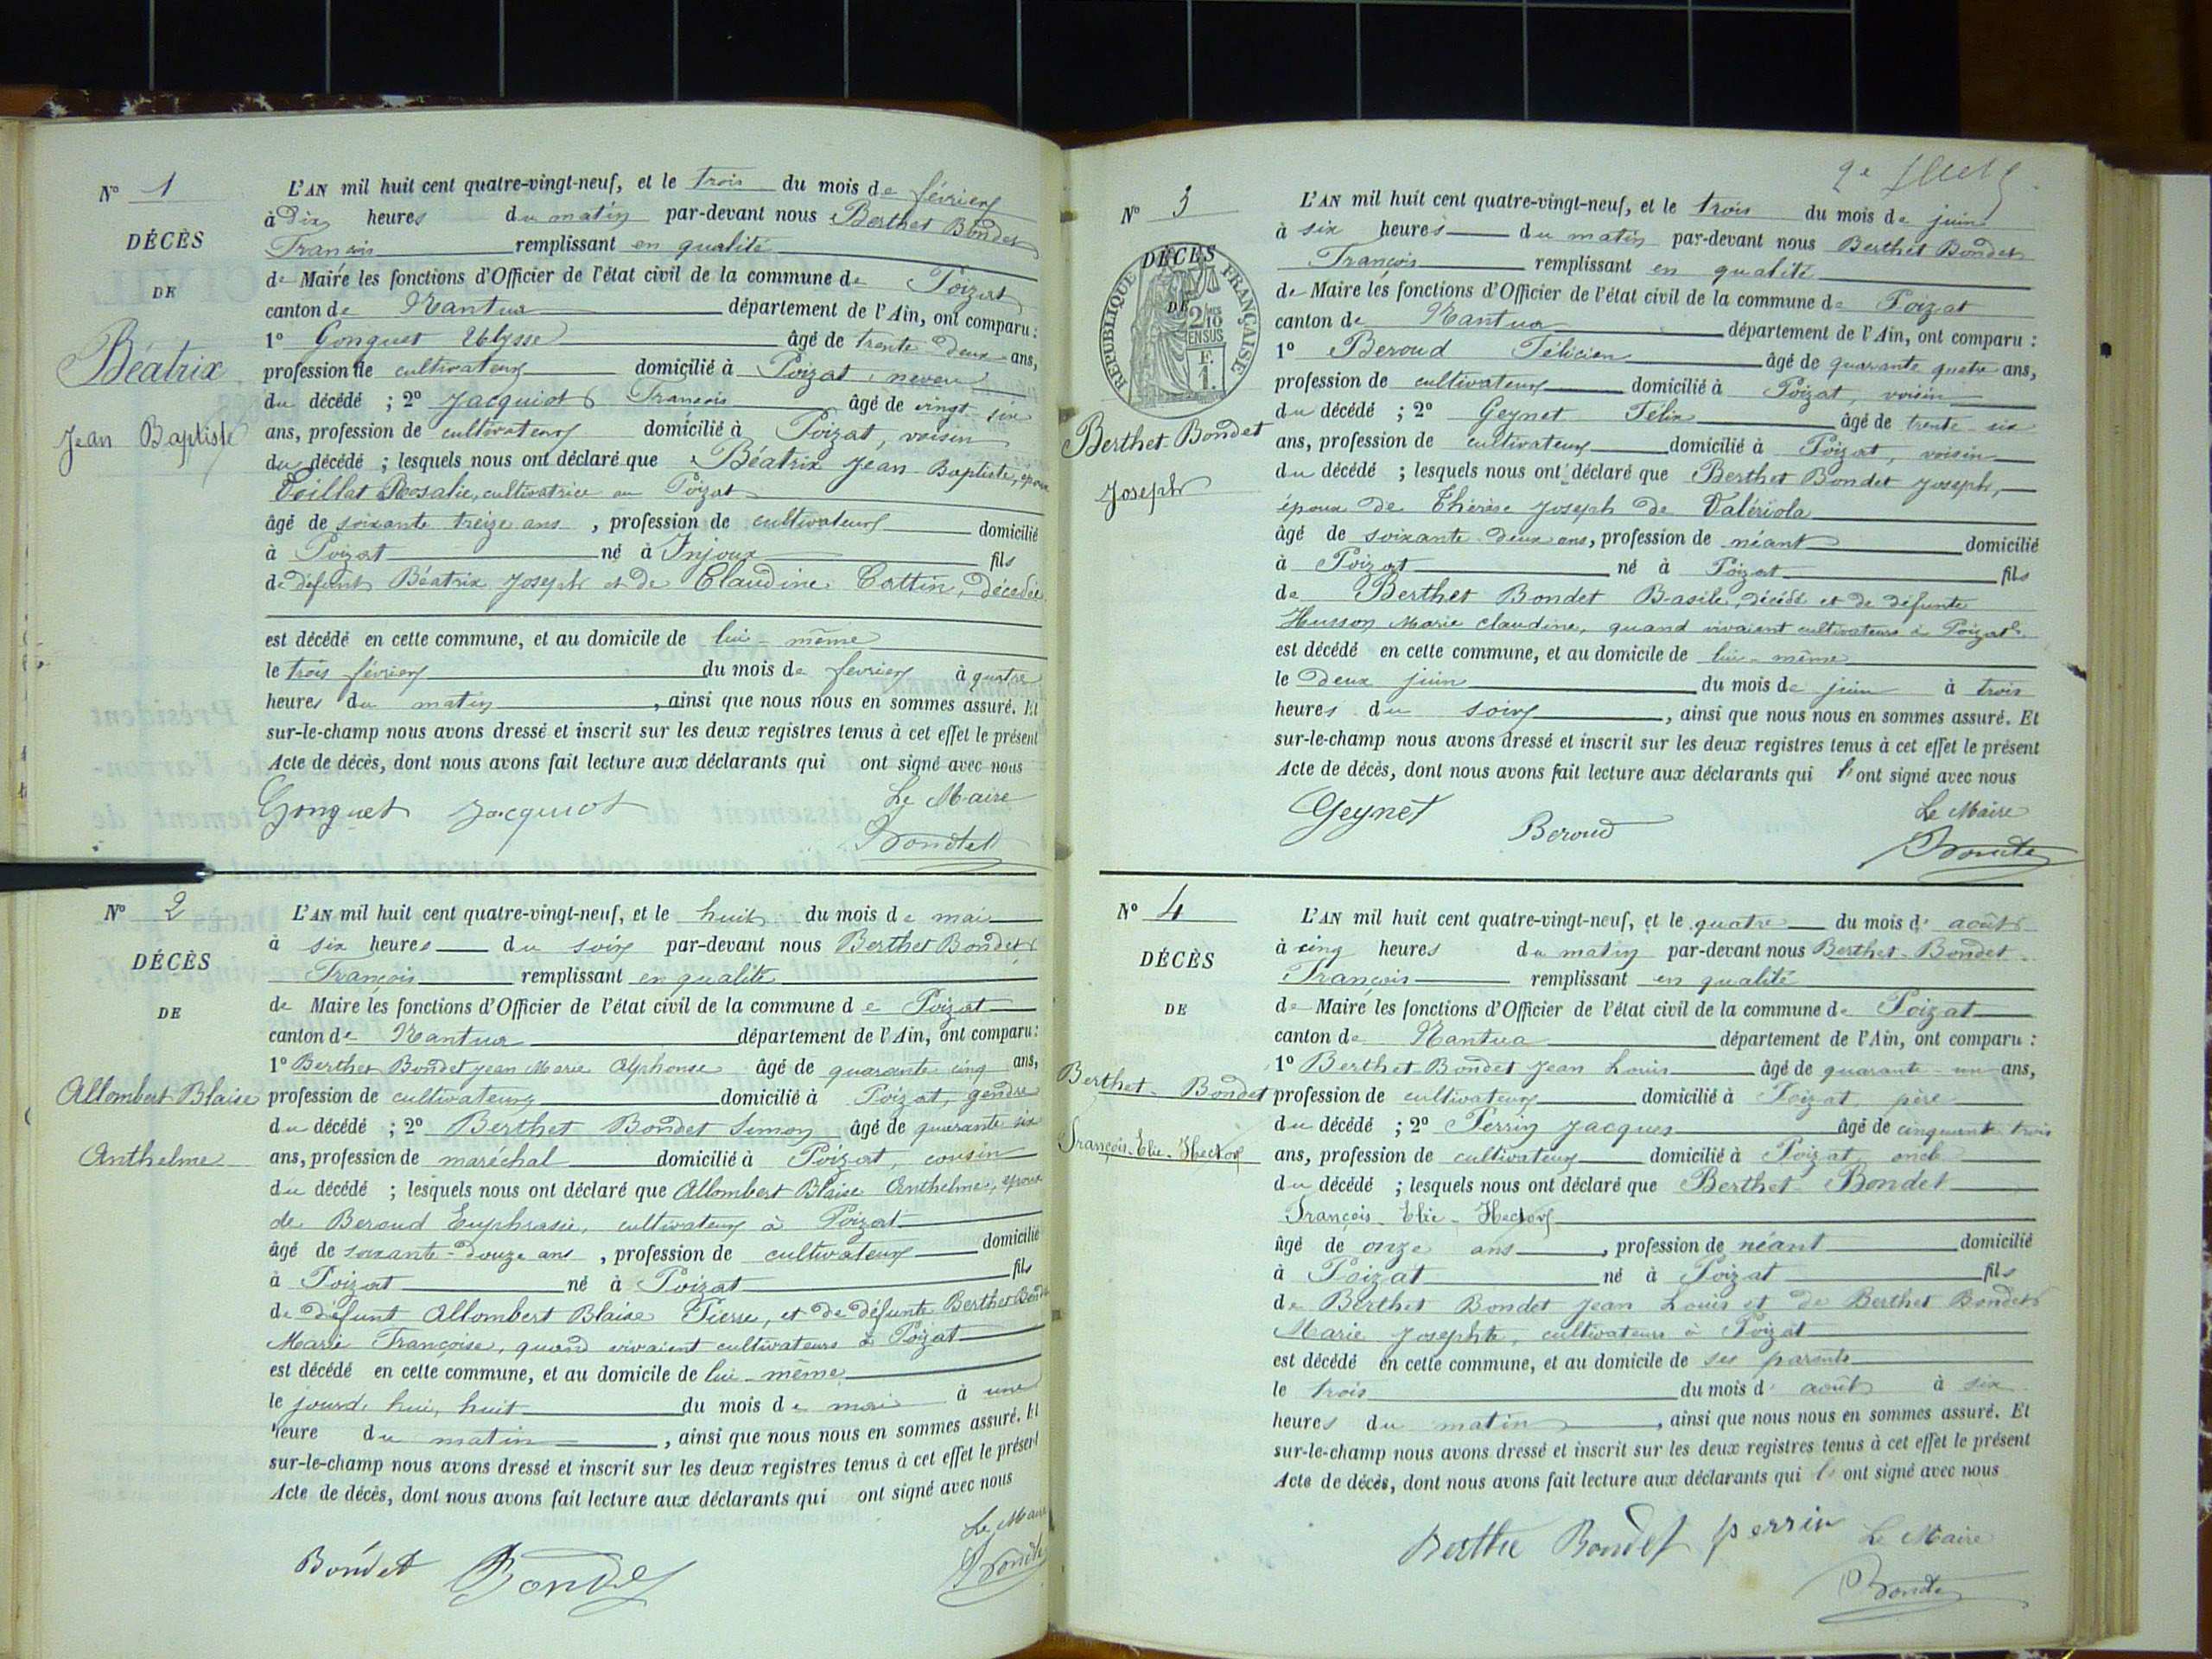 N° 1
DÉCÈS
DE
Béatrix
Jean Baptiste
L'AN mil huit cent quatre-vingt-neuf, et le trois du mois de février
à dix heures du matin par-devant nous Berthet Bondet
François remplissant en qualité
de Maire les fonctions d'Officier de l'état civil de la commune de Poizat
canton de Nantua département de l'Ain, ont comparu :
1° Gonguet Ulysse âgé de trente deux ans,
profession de cultivateur domicilié à Poizat, neveu
du décédé ; 2° Jacquiot François âgé de vingt-six
ans, profession de cultivateur domicilié à Poizat, voisin
du décédé ; lesquels nous ont déclaré que Béatrix Jean Baptiste, époux
Veillat Rosalie, cultivatrice au Poizat
âgé de soixante treize ans, profession de cultivateur domicilié
à Poizat né à Injoux fils
de défunt Béatrix Joseph et de Claudine Cattin, décédée
est décédé en cette commune, et au domicile de lui-même
le trois février du mois de février à quatre
heures du matin, ainsi que nous nous en sommes assuré. Et
sur-le-champ nous avons dressé et inscrit sur les deux registres tenus à cet effet le présent
Acte de décès, dont nous avons fait lecture aux déclarants qui ont signé avec nous
Gonguet Jacquiot Le Maire
Bondet
N° 2
DÉCÈS
DE
Allombert Blaise
Anthelme
L'AN mil huit cent quatre-vingt-neuf, et le huit du mois de mai
à six heures du soir par-devant nous Berthet Bondet
François remplissant en qualité
de Maire les fonctions d'Officier de l'état civil de la commune de Poizat
canton de Nantua département de l'Ain, ont comparu :
1° Berthet Bondet Jean Marie Alphonse âgé de quarante cinq ans,
profession de cultivateur domicilié à Poizat, gendre
du décédé ; 2° Berthet Bondet Simon âgé de quarante six
ans, profession de maréchal domicilié à Poizat, cousin
du décédé ; lesquels nous ont déclaré que Allombert Blaise Anthelme, époux
de Beroud Euphrasie, cultivateur à Poizat
âgé de soixante-douze ans, profession de cultivateur domicilié
à Poizat né à Poizat fils
de défunt Allombert Blaise Pierre, et de défunte Berthet Bondet
Marie Françoise, quand vivaient cultivateurs à Poizat
est décédé en cette commune, et au domicile de lui-même
le jourd'hui, huit du mois de mai à une
heure du matin, ainsi que nous nous en sommes assuré. Et
sur-le-champ nous avons dressé et inscrit sur les deux registres tenus à cet effet le présent
Acte de décès, dont nous avons fait lecture aux déclarants qui ont signé avec nous
Le Maire
Bondet Bondet Bondet
2e
N° 3
DÉCÈS
DE
RÉPUBLIQUE FRANÇAISE
2/10
EN SUS
F.
1.
Berthet-Bondet
Joseph
L'AN mil huit cent quatre-vingt-neuf, et le trois du mois de juin
à six heures du matin par-devant nous Berthet Bondet
François remplissant en qualité
de Maire les fonctions d'Officier de l'état civil de la commune de Poizat
canton de Nantua département de l'Ain, ont comparu :
1° Beroud Félicien âgé de quarante quatre ans,
profession de cultivateur domicilié à Poizat, voisin
du décédé ; 2° Geynet Félix âgé de trente-six
ans, profession de cultivateur domicilié à Poizat, voisin
du décédé ; lesquels nous ont déclaré que Berthet Bondet Joseph,
époux de Thérèse Joseph de Valériola
âgé de soixante-deux ans, profession de néant domicilié
à Poizat né à Poizat fils
de Berthet Bondet Basile, décédé et de défunte
Husson Marie Claudine, quand vivaient cultivateurs à Poizat
est décédé en cette commune, et au domicile de lui-même
le deux juin du mois de juin à trois
heures du soir, ainsi que nous nous en sommes assuré. Et
sur-le-champ nous avons dressé et inscrit sur les deux registres tenus à cet effet le présent
Acte de décès, dont nous avons fait lecture aux déclarants qui l'ont signé avec nous
Geynet Beroud Le Maire
Bondet
N° 4
DÉCÈS
DE
Berthet-Bondet
François-Elie-Hector
L'AN mil huit cent quatre-vingt-neuf, et le quatre du mois d'août
à cinq heures du matin par-devant nous Berthet-Bondet
François remplissant en qualité
de Maire les fonctions d'Officier de l'état civil de la commune de Poizat
canton de Nantua département de l'Ain, ont comparu :
1° Berthet-Bondet Jean Louis âgé de quarante-un ans,
profession de cultivateur domicilié à Poizat, père
du décédé ; 2° Perrin Jacques âgé de cinquante trois
ans, profession de cultivateur domicilié à Poizat, oncle
du décédé ; lesquels nous ont déclaré que Berthet-Bondet
François-Elie-Hector
âgé de onze ans, profession de néant domicilié
à Poizat né à Poizat fils
de Berthet Bondet Jean Louis et de Berthet Bondet
Marie Josephte, cultivateurs à Poizat
est décédé en cette commune, et au domicile de ses parents
le trois du mois d'août à six
heures du matin, ainsi que nous nous en sommes assuré. Et
sur-le-champ nous avons dressé et inscrit sur les deux registres tenus à cet effet le présent
Acte de décès, dont nous avons fait lecture aux déclarants qui l'ont signé avec nous
Berthet Bondet perrin Le Maire
Bondet